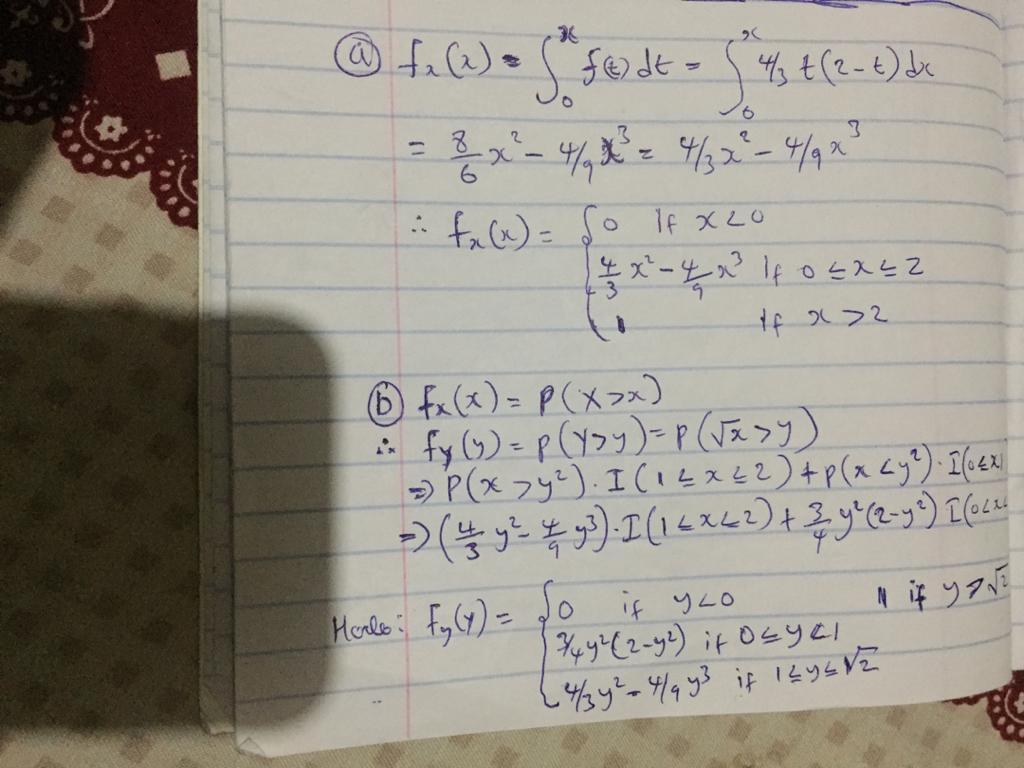 ⓐ fₓ(x) = ∫₀ˣ f(t) dt = ∫₀ˣ 4/3 t(2-t) dx
= 8/6 x² - 4/9 x³ = 4/3 x² - 4/9 x³
∴ fₓ(x) = { 0 If x < 0
4/3 x² - 4/9 x³ If 0 ≤ x ≤ 2
1 If x > 2
ⓑ fₓ(x) = P(X > x)
∴ fᵧ(y) = P(Y > y) = P(√x > y)
⇒ P(x > y²) · I(1 ≤ x ≤ 2) + P(x < y²) · I(0 ≤ x
⇒ (4/3 y² - 4/9 y³) · I(1 ≤ x ≤ 2) + 3/4 y²(2-y²) I(0 < x ≤
: Fᵧ(y) = { 0 if y < 0 1 if y > √2
3/4 y²(2-y²) if 0 ≤ y < 1
4/3 y² - 4/9 y³ if 1 ≤ y ≤ √2